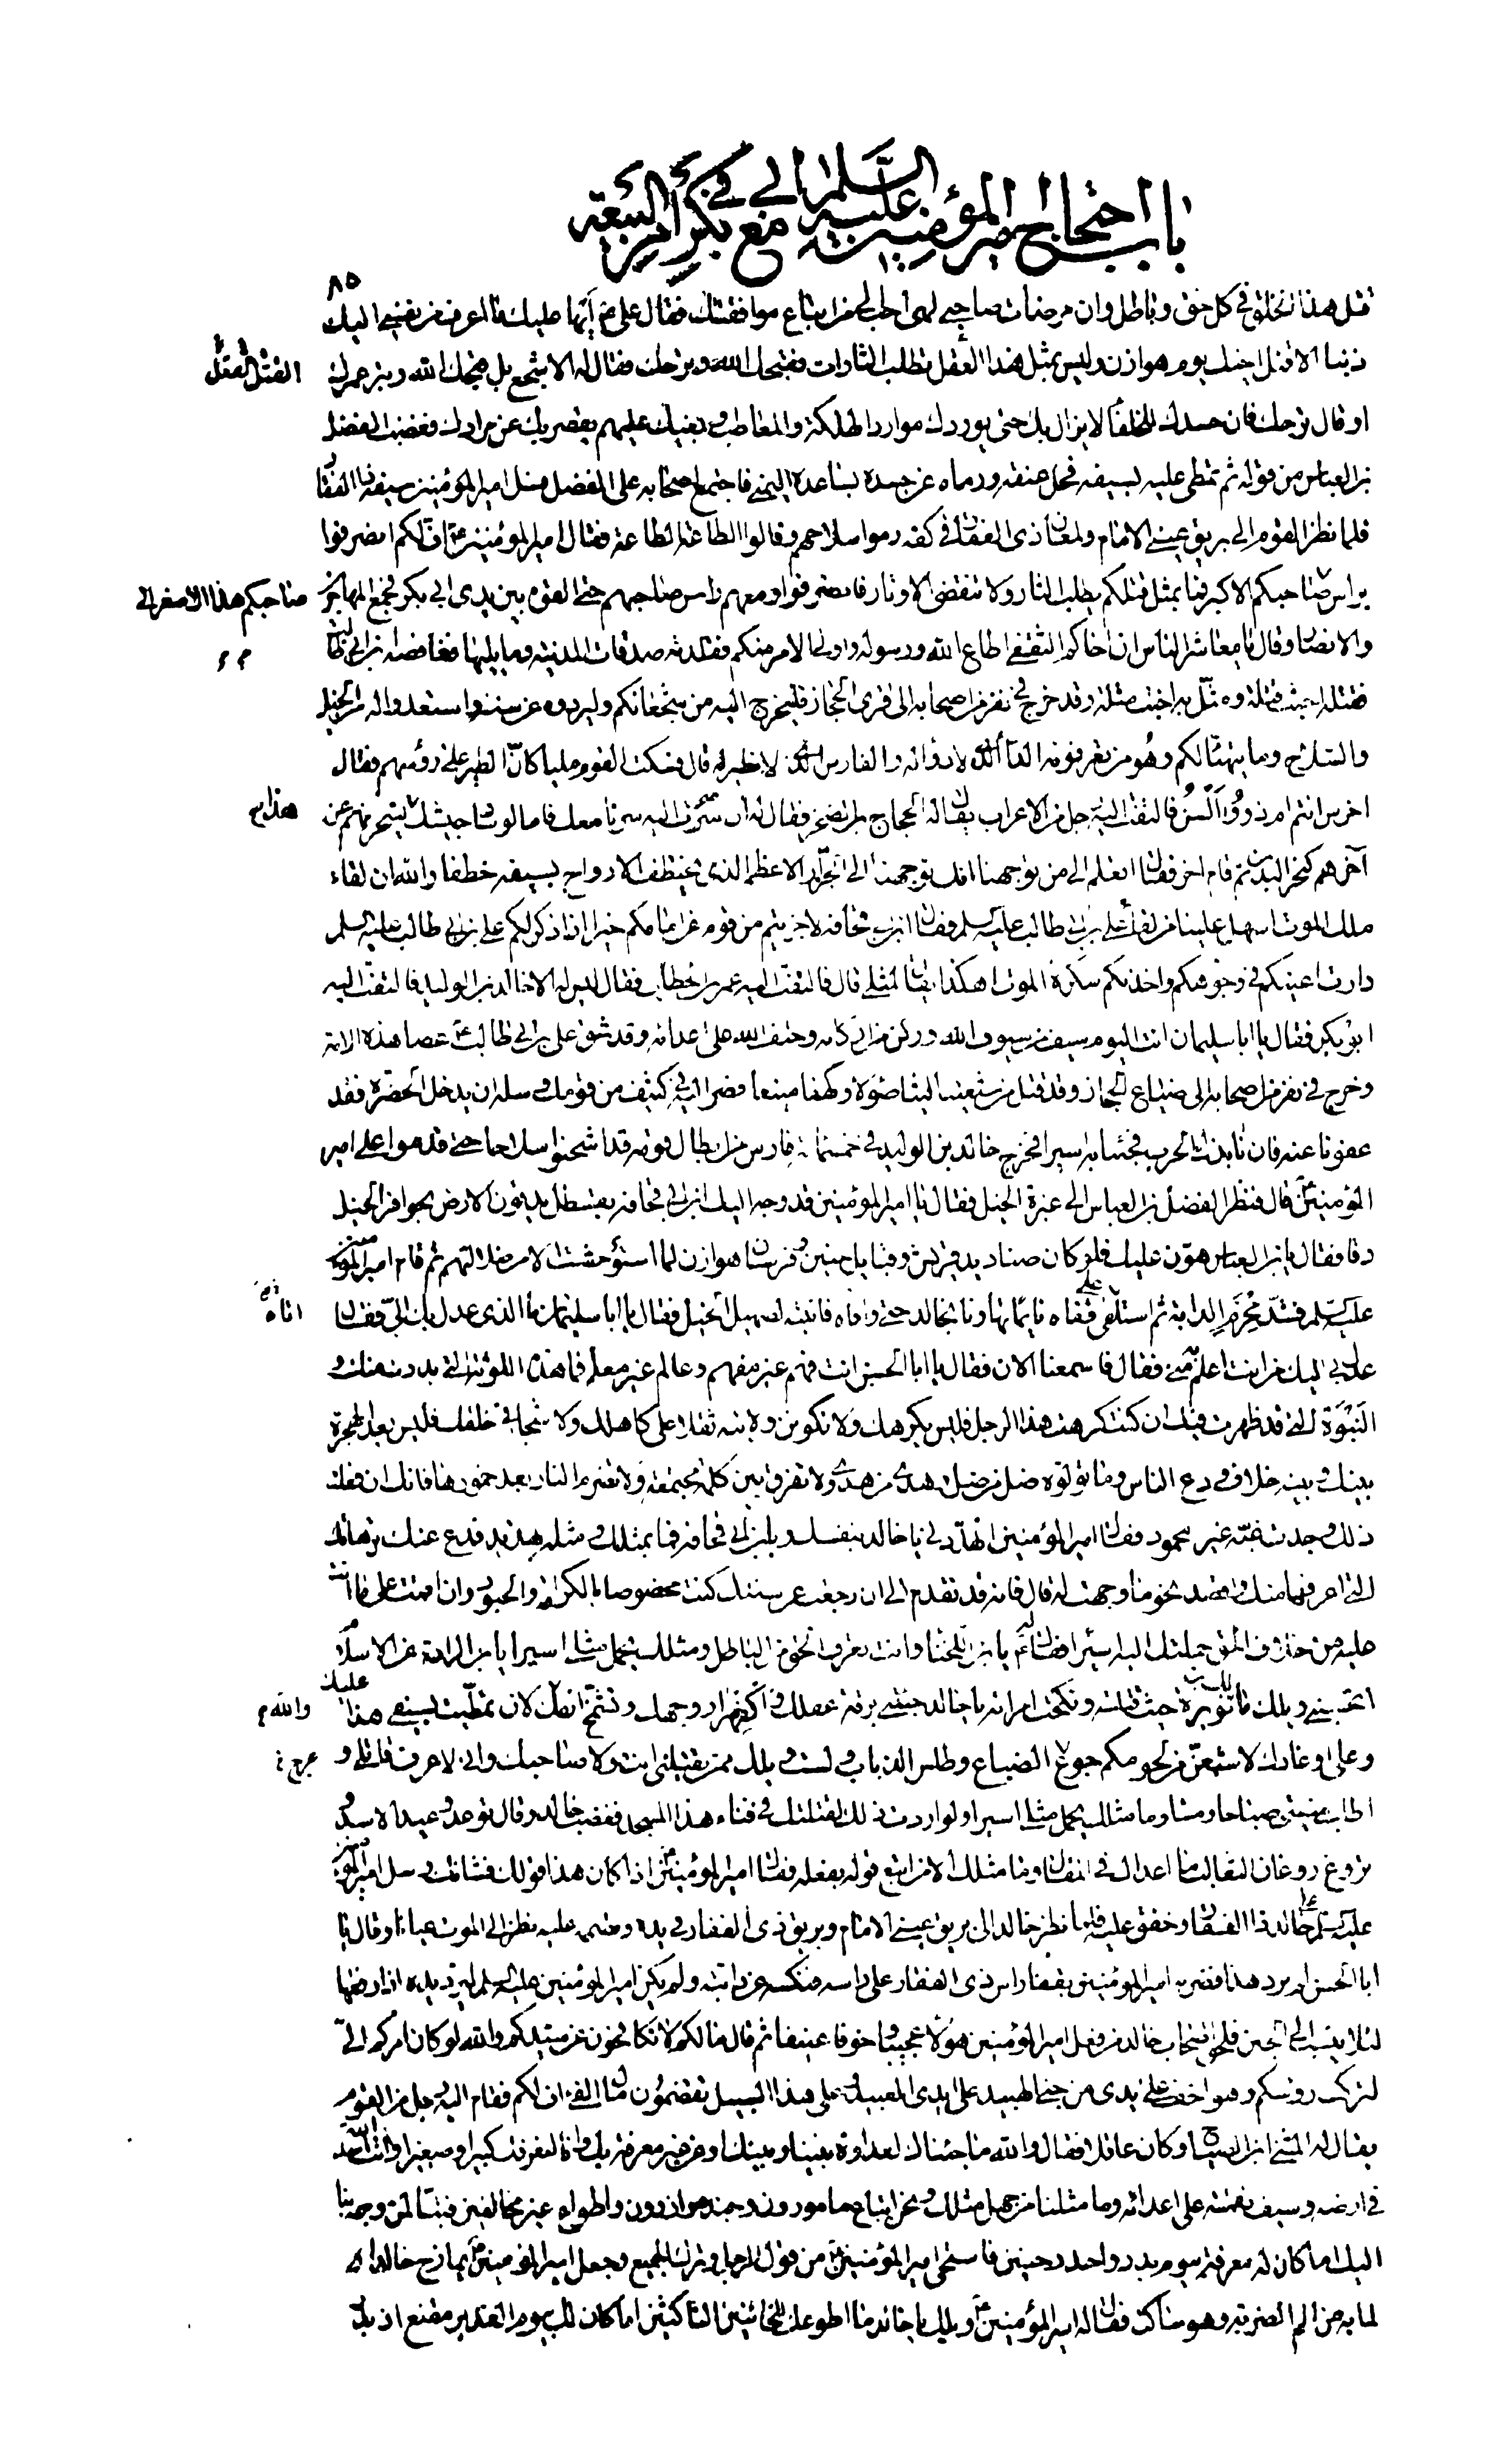 باب احتجاج امير المؤمنين عليه السلم الى في مع بكر امر البيعة
٨٥
مثل هذا الخلق في كل حق وباطل وان مرضات صاحبي لهي احب الي من اتباع موافقتك فقال علي ع انها عليك ما اعرف من نفسي اليك
ذنبا الا قتل اخيك يوم هوازن وليس بمثل هذا العقل تطلب الثارات فقبحك الله وترحك فقال له الاشجع بل قبحك الله وبتر عمرك
القتل العقل
او قال ترحك فان حسدك للخلفا لا يزال بك حتى يوردك موارد الهلكة والمعاطب وبغيك عليهم يقصر بك عن مرادك فغضب الفضل
بن العباس من قوله ثم تمطى عليه بسيفه فحل عنقه ورماه عن جسده بساعده اليمنى فاجتمع اصحابه على الفضل فسل امير المؤمنين سيفه ذا الفقار
فلما نظر القوم الى بريق عيني الامام ولمعان ذي الفقار في كفه رموا سلاحهم وقالوا الطاعة الطاعة فقال امير المؤمنين ع اف لكم انصرفوا
براس صاحبكم الاكبر فما بمثل قتلكم يطلب الثار ولا تنقضى الاوتار فانصرفوا ومعهم راس صاحبهم حتى القوه بين يدي ابي بكر فجمع المهاجرين
صاحبكم هذا الاصغر الى
والانصار وقال يا معاشر الناس ان اخاكم الثقفي اطاع الله ورسوله واولى الامر منكم فقلدته صدقات المدينة وما يليها فغافصه ابن ابي طالب
فقتله اخبث قتلة ومثل به اخبث مثلة وقد خرج في نفر من اصحابه الى قرى الحجاز فليخرج اليه من شجعانكم وليردوه عن سننه واستعدوا له من الخيل
والسلاح وما يتهيا لكم وهو من تعرفونه الداء الذي لا دواء له والفارس الذي لا نظير له قال فسكت القوم مليا كان الطير على رؤسهم فقال
اخرس انتم ام ذووا السن فالتفت اليه رجل من الاعراب يقال له الحجاج بن الصخر فقال له ان سرت اليه سرنا معك فاما لو سار جيشك لينحرنهم عن
هذا ح
آخرهم كنحر البدن ثم قام اخر فقال اتعلم الى من توجهنا انك توجهنا الى الجزار الاعظم الذي يختطف الارواح بسيفه خطفا والله ان لقاء
ملك الموت اسهل علينا من لقاء علي بن ابي طالب عليه السلم فقال ابن ابي قحافة لا جزيتم من قوم عن امامكم خيرا اذا ذكر لكم علي بن ابي طالب عليه السلم
دارت اعينكم في وجوهكم واخذتكم سكرة الموت اهكذا يقال لمثلي قال فالتفت اليه عمر بن الخطاب فقال ليس له الا خالد بن الوليد فالتفت اليه
ابو بكر فقال يا ابا سليمان انت اليوم سيف من سيوف الله وركن من اركانه وحتف الله على اعدائه وقد شق علي بن ابي طالب ع عصا هذه الامة
وخرج في نفر من اصحابه الى ضياع الحجاز وقد قتل من شيعتنا ليثا صؤلا وكهفا منيعا فصر اليه في كثيف من قومك وسله ان يدخل الحضرة فقد
عفونا عنه فان نابذك الحرب فجئنا به اسيرا فخرج خالد بن الوليد في خمسمائة فارس من ابطال قومه قد اشحنوا سلاحا حتى قدموا على امير
المؤمنين ع قال فنظر الفضل بن العباس الى غبرة الخيل فقال يا امير المؤمنين قد وجه اليك ابن ابي قحافة بقسطل يدقون الارض بحوافر الخيل
دقا فقال يا بن العباس هون عليك فلو كان صناديد قريش وقبايل حنين وفرسان هوازن لما استوحشت الا من ضلالتهم ثم قام امير المؤمنين
عليه السلم فشد محزم الدابة ثم استلقى على قفاه نائما تهاونا بخالد حتى وافاه فانتبه لصهيل الخيل فقال يا ابا سليمان ما الذي عدل بك الي فقال
اتاه
عدل بي اليك من انت اعلم به مني فقال فاسمعنا الان فقال يا ابا الحسن انت فهم غير مفهم وعالم غير معلم فما هذه اللوثة التي بدرت منك و
النبوة التي قد ظهرت فيك ان كنت كرهت هذا الرجل فليس يكرهك ولا تكونن ولايته ثقلا على كاهلك ولا شجا في حلقك فليس بعد الهجرة
بينك وبينه خلاف ودع الناس وما تولوه ضل من ضل وهدى من هدى ولا تفرق بين كلمة مجتمعة ولا تضرم النار بعد خمودها فانك ان فعلت
ذلك وجدت غبه غير محمود فقال امير المؤمنين اتهددني يا خالد بنفسك وبابن ابي قحافة فما بمثلك ومثله تهديد فدع عنك ترهاتك
التي اعرفها منك واقصد نحو ما وجهت له قال فانه قد تقدم الي ان رجعت عن سننك كنت مخصوصا بالكرامة والحبو وان اقمت على ما انت
عليه من خلاف الحق حملتك اليه اسيرا فقال له ع يا بن اللخناء وانت تعرف الحق من الباطل ومثلك يحمل مثلي اسيرا يا بن الرادة عن الاسلام
اتحسبني ويلك مالك بن نويرة حيث قتلته ونكحت امراته يا خالد جئتني برقة عقلك واكفهرار وجهك وتشمخ انفك لان تمطيت بسيفي هذا عليك
والله م
وعلى اوغادك لاشبعن من لحومكم جوع الضباع وطلس الذباب ولست ويلك ممن يقتلني انت ولا صاحبك واني لاعرف قاتلي و
عرج خ
اطلب منيتي صباحا ومساء وما مثلك يحمل مثلي اسيرا ولو اردت ذلك لقتلتك في فناء هذا المسجد فغضب خالد وقال توعد وعيد الاسد و
تروغ روغان الثعالب ما اعداك في المقال وما مثلك الا من اتبع قوله بفعله فقال امير المؤمنين ع اذا كان هذا قولك فشانك وسل امير المؤمنين
عليه السلم على خالد ذا الفقار وخفق عليه فلما نظر خالد الى بريق عيني الامام وبريق ذي الفقار في يده وتصممه عليه نظر الى الموت عيانا وقال يا
ابا الحسن لم نرد هذا فضربه امير المؤمنين بقفار اس ذي الفقار على راسه فنكسه عن دابته ولم يكن امير المؤمنين عليه السلم ليرد يده اذا رفعها
لئلا ينسب الى الجبن فلحق اصحاب خالد من فعل امير المؤمنين هول عجيب وخوفا عنيفا ثم قال مالكم لا تكافحون عن سيدكم والله لو كان امركم الي
لتركت رؤسكم وهو اخف على يدي من جنا الهبيد على ايدي العبيد وعلى هذا السبيل تقضمون مال الفئ اف لكم فقام اليه رجل من القوم
يقال له المثنى ابن الصباح وكان عاقلا فقال والله ما جئناك لعداوة بيننا وبينك او عن غير معرفة بك وانا لنعرفك كبيرا وصغيرا وانت اسد الله
في ارضه وسيف نقمته على اعدائه وما مثلنا من جهل مثلك ونحن اتباع مامورون وجند موازرون واطواع غير مخالفين فتبا لمن وجه بنا
اليك اما كان له معرفة بيوم بدر واحد وحنين فاستحى امير المؤمنين ع من قول الرجل وترك الجميع وجعل امير المؤمنين ع يمازح خالدا
لما به من الم الضربة وهو ساكت فقال له امير المؤمنين ع ويلك يا خالد ما اطوعك للخائنين الناكثين اما كان لك بيوم الغدير مقنع اذ بدر